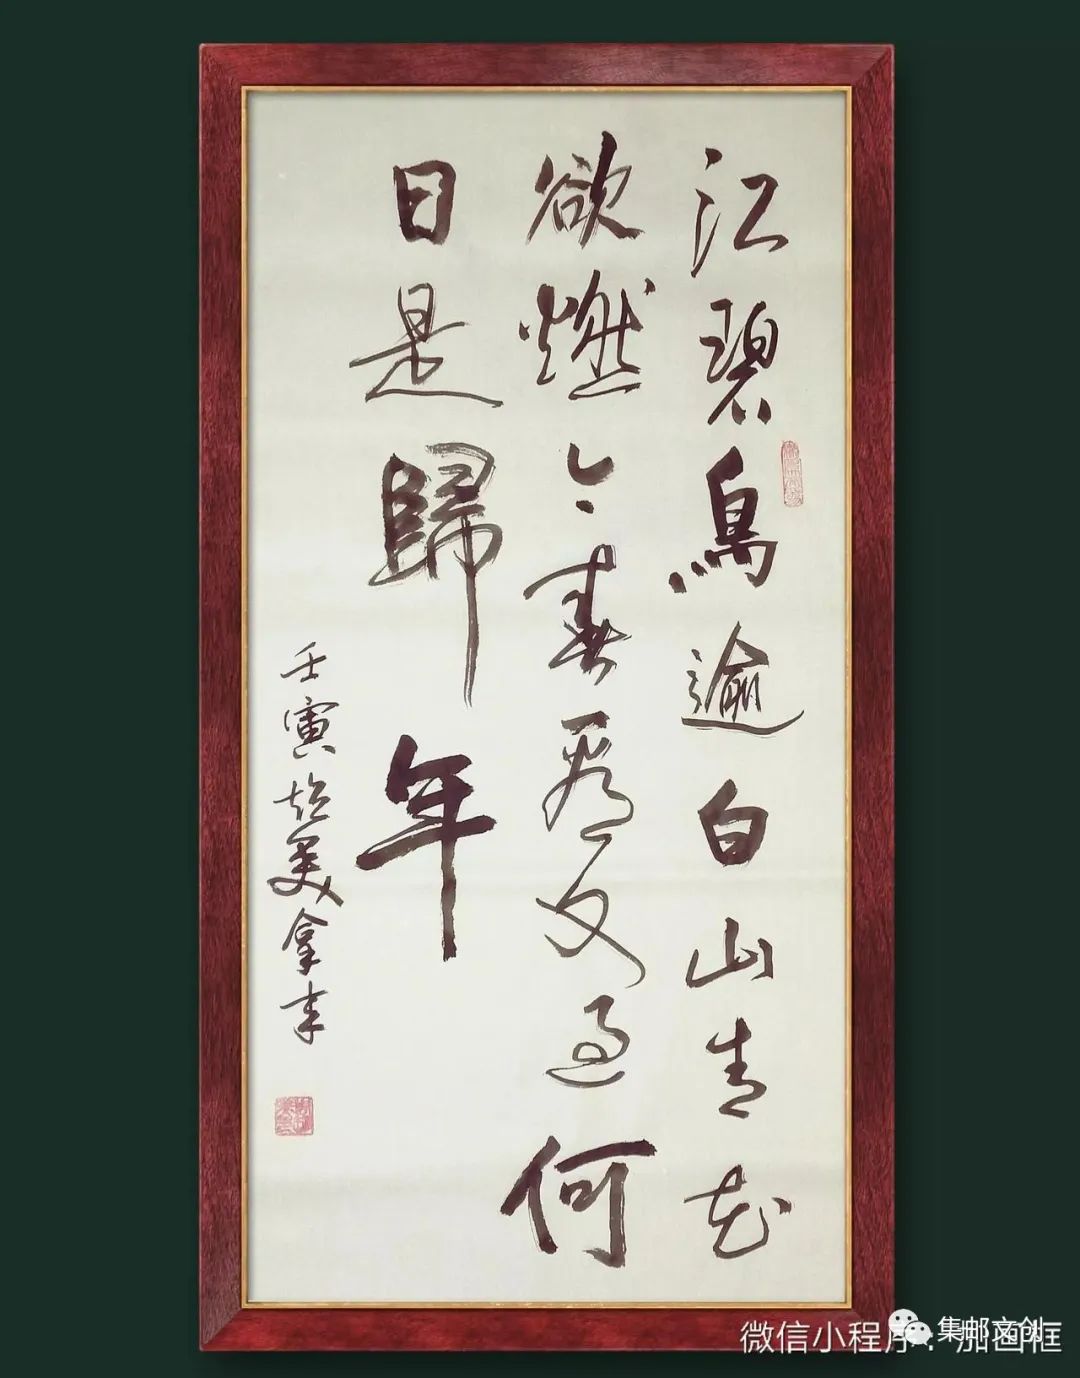 江碧鳥逾白山青花
欲燃今春看又過何
日是歸年
壬寅
微信小程序：加画框
集邮文创